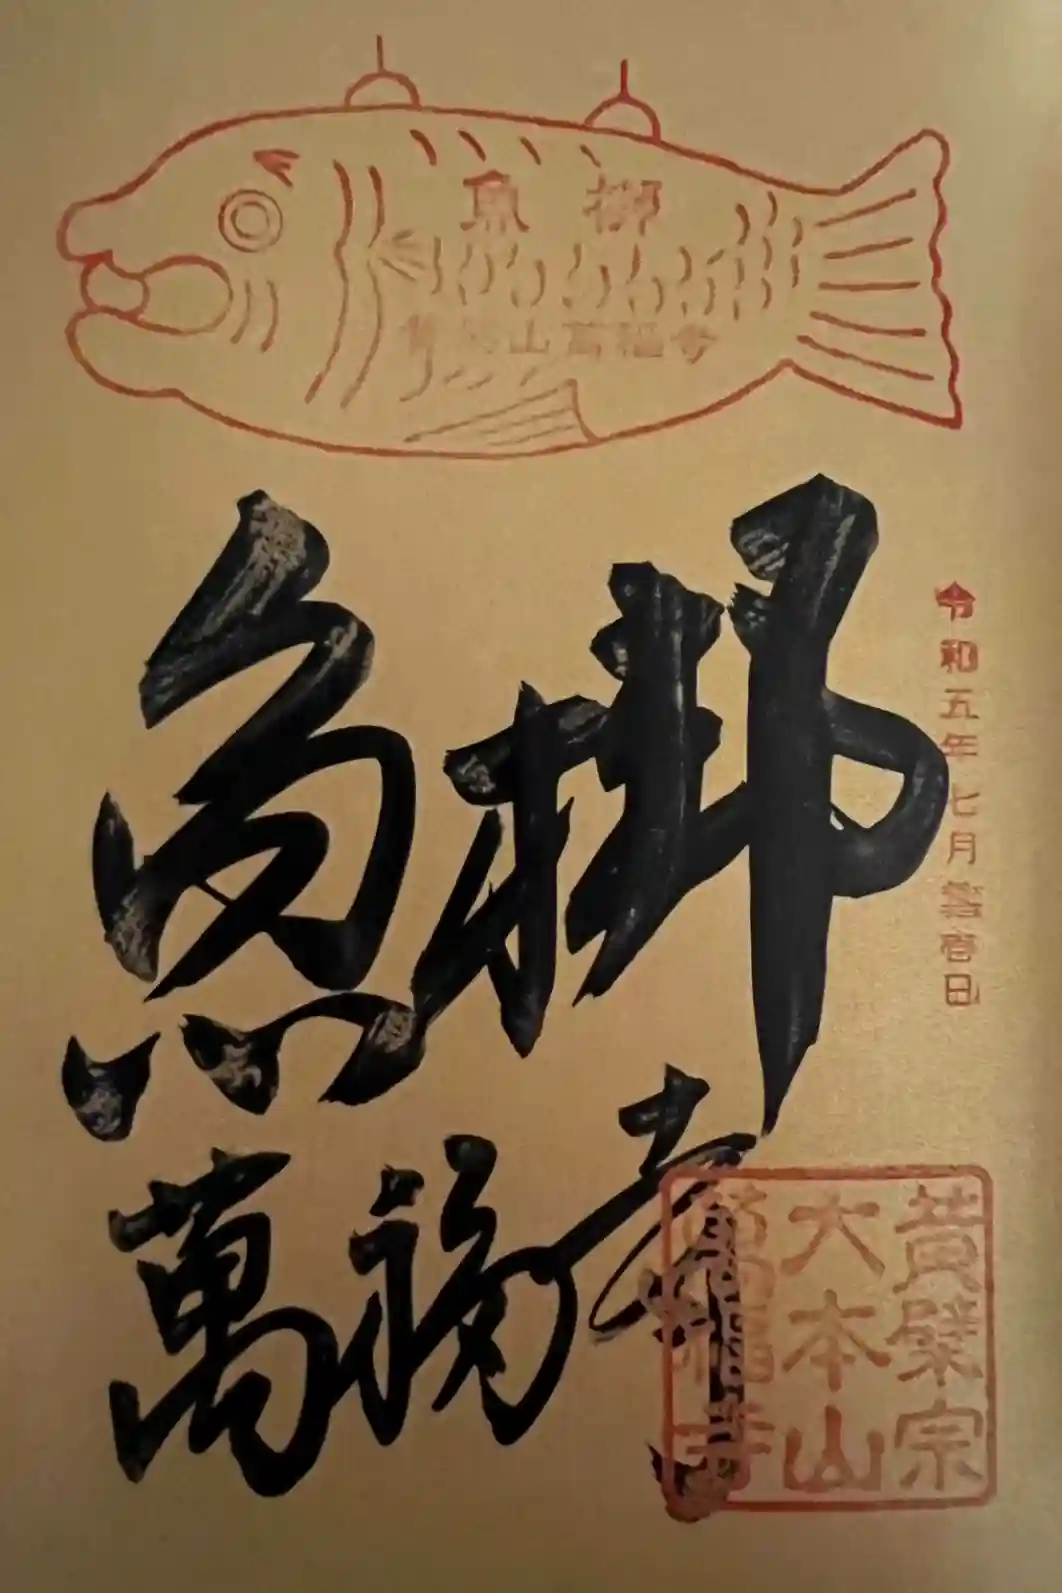 魚梆
黄檗山萬福寺
魚梆
萬福寺
令和五年七月日
黄檗宗
大本山
萬福寺